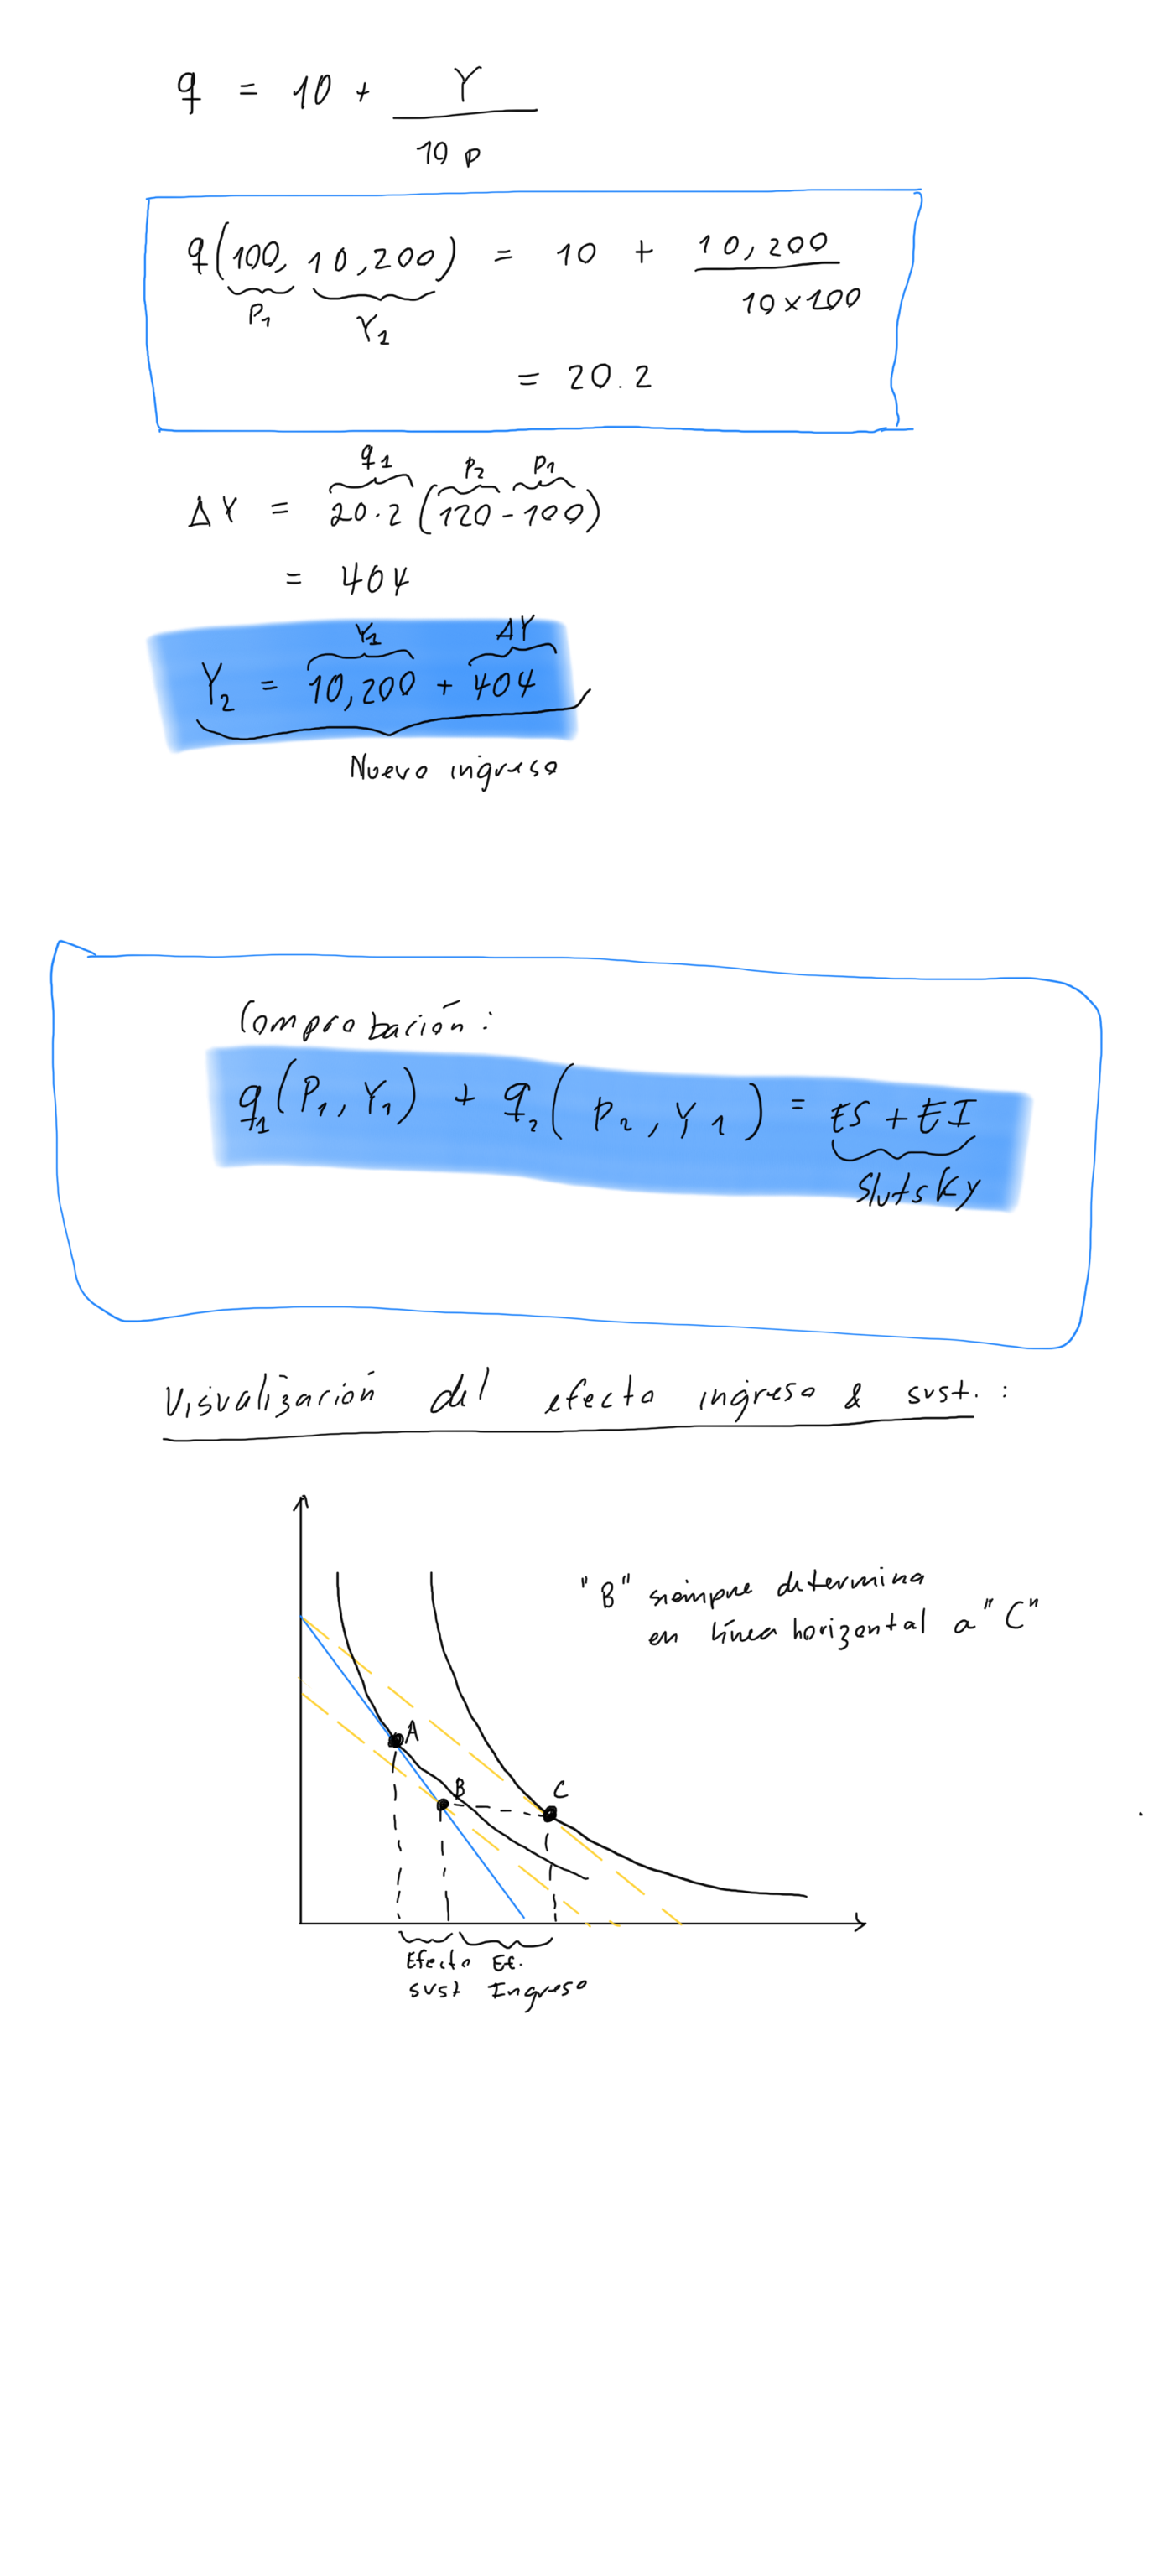 q = 10 + Y
10 p
q(100, 10,200) = 10 + 10,200
10×100
P1 Y1
= 20.2
q1 P2 P1
ΔY = 20.2 (120-100)
= 404
Y1 ΔY
Y2 = 10,200 + 404
Nuevo ingreso
Comprobación:
q1(P1, Y1) + q2(P2, Y1) = ES + EI
Slutsky
Visualización del efecto ingreso & sust. :
"B" siempre determina
en línea horizontal a "C"
A
B C
Efecto Ef.
sust Ingreso